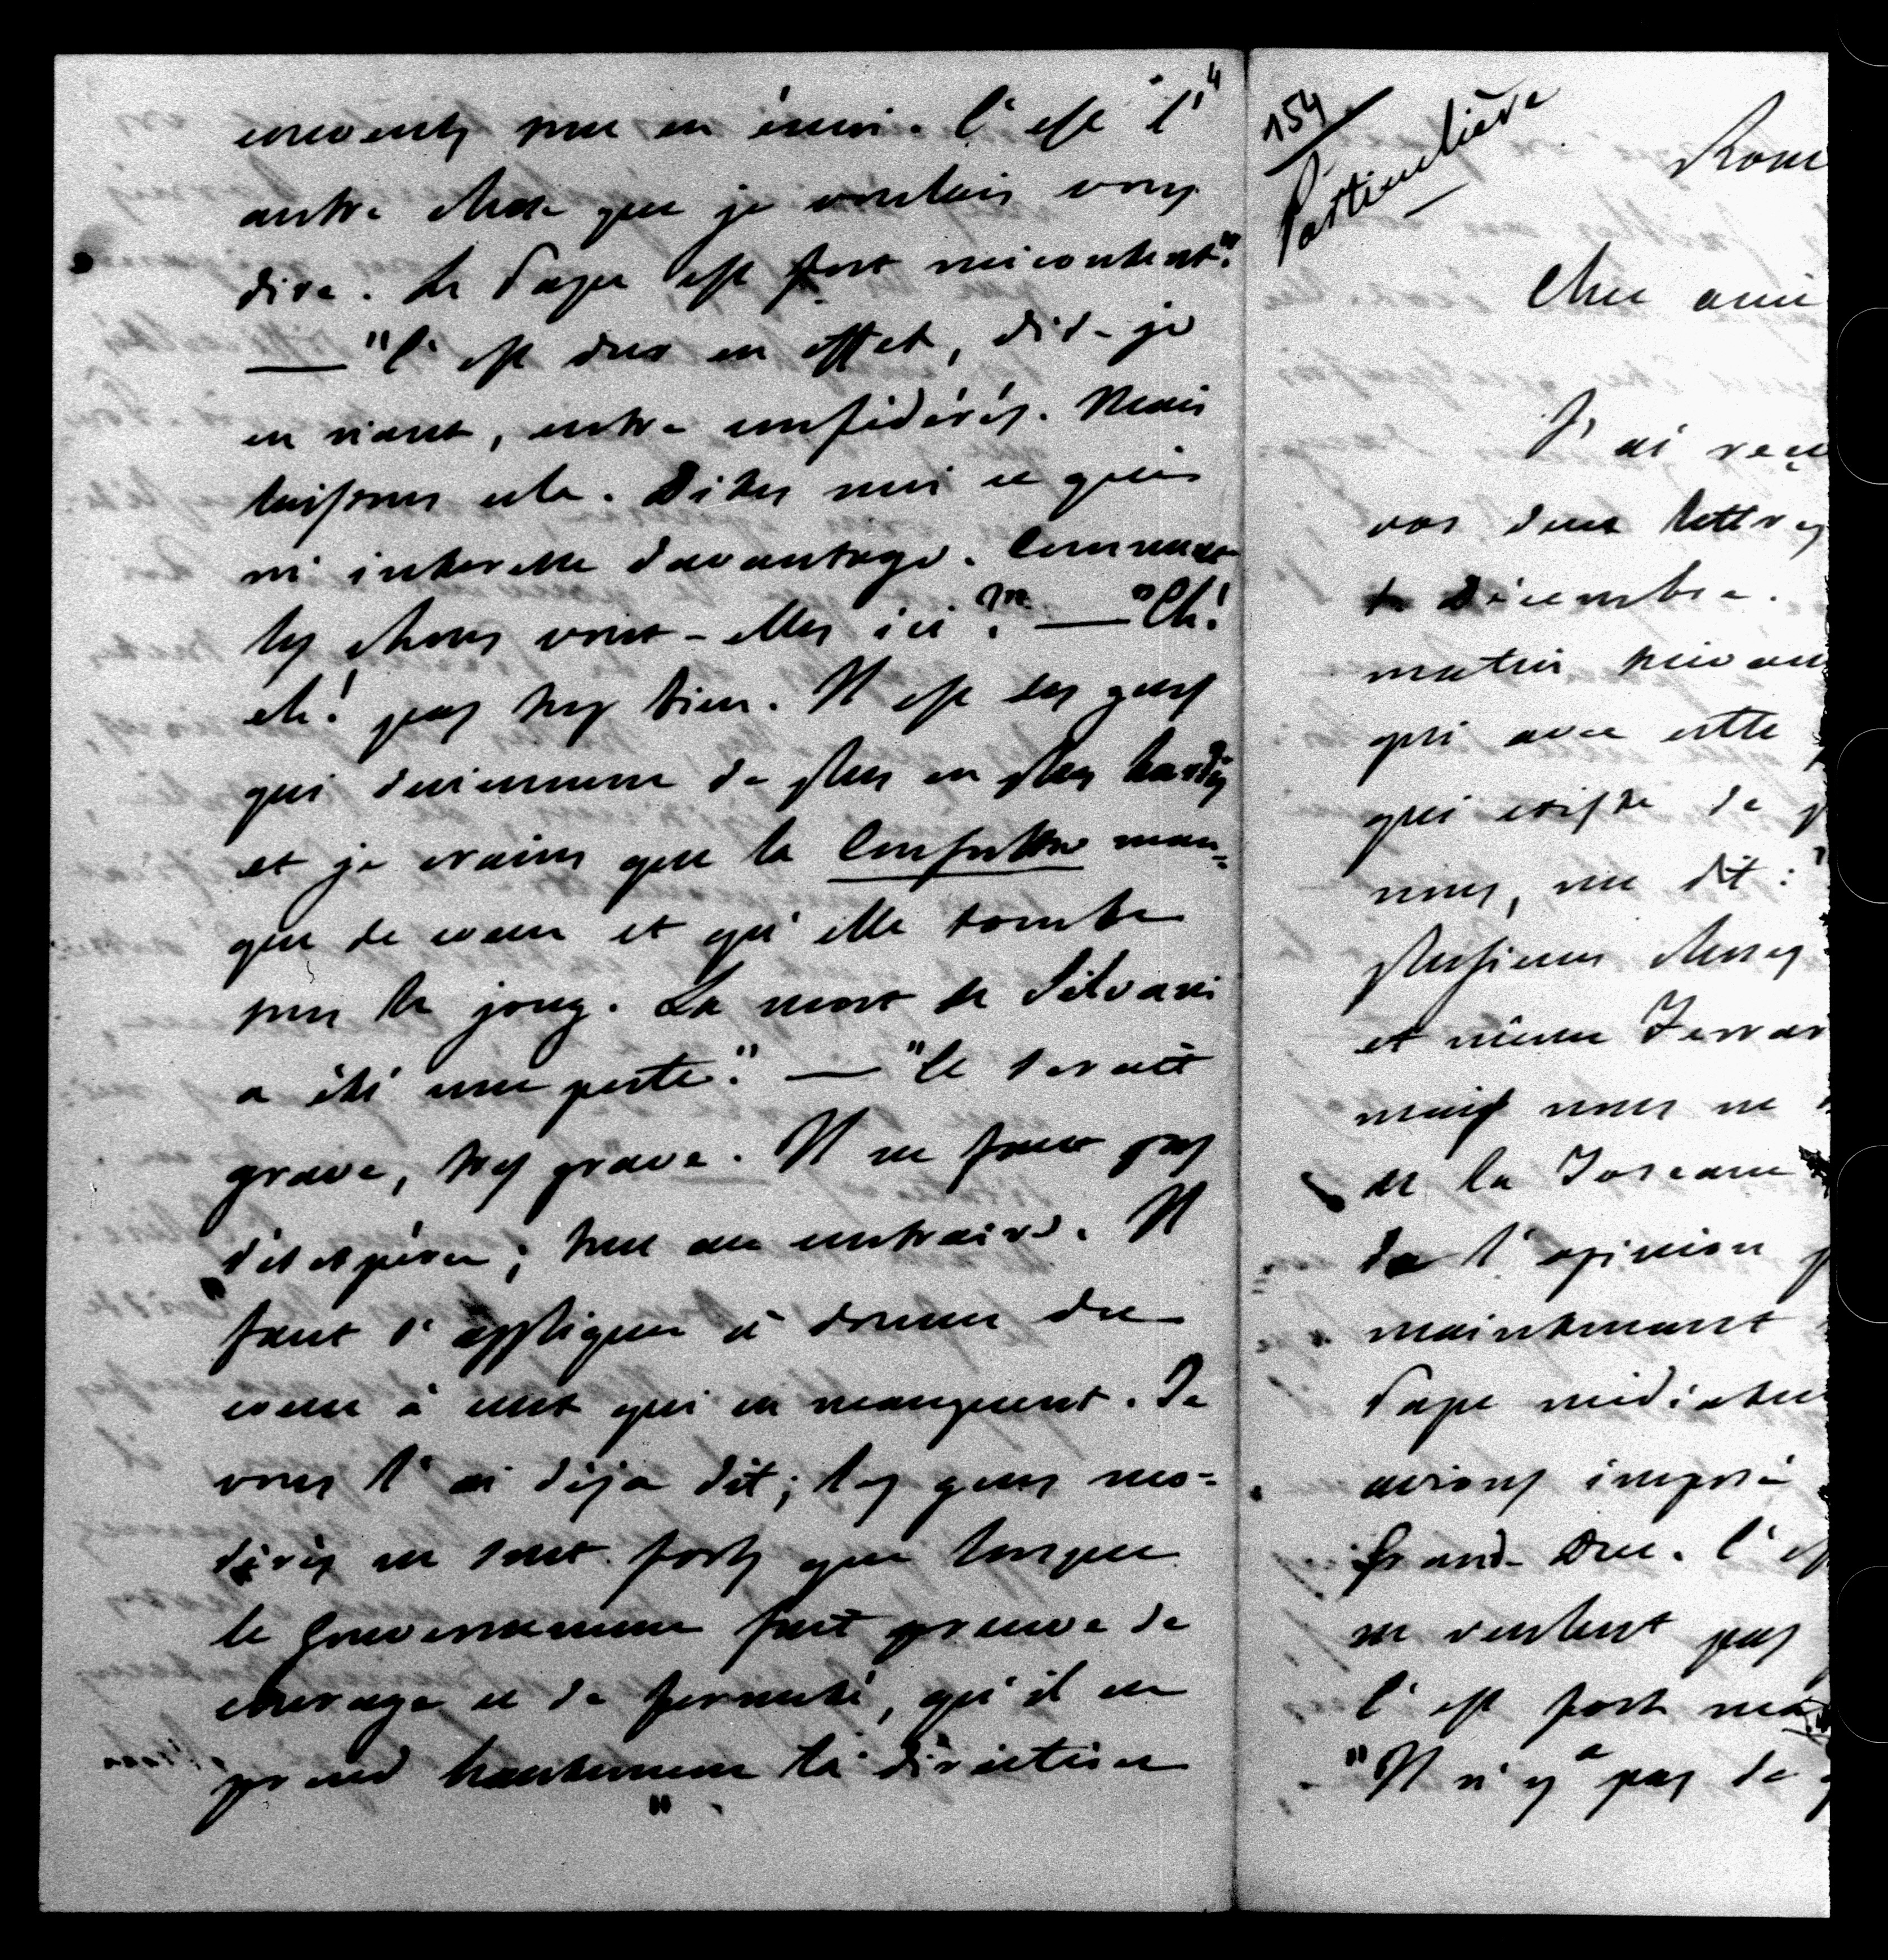 convents pour en écrire. C'est l'
autre chose que je voulais vous
dire. Le Pape est fort mécontent."
— "C'est dur en effet, dis-je
en riant, entre confédérés. Mais
laissons cela. Dites moi ce qui
m'intéresse davantage. Comment
les choses vont-elles ici?" — "Eh!
eh! pas trop bien. Il est des gens
qui deviennent de plus en plus hardis
et je crains que la Consulta man=
que de cœur et qu'elle tombe
sous le joug. La mort de Silvani
a été une perte." — "Ce serait
grave, très grave. Il ne faut pas
désespérer; tout au contraire. Il
faut s'appliquer à donner du
cœur à ceux qui en manquent. Je
vous l'ai déjà dit; les gens mo=
dérés ne sont forts que lorsque
le Gouvernement fait preuve de
courage et de fermeté, qu'il en
prend hautement la direction
4
154
Particulière
Rome
Cher ami
J'ai reçu
vos deux lettres
Décembre.
matin
qui avec cette
qui existe de
nous, me dit: "
plusieurs choses
et même Ferrar
mais nous ne
de la Toscane
de l'opinion
maintenant
Pape médiateur
avions imposé
Grand-Duc. C'est
ne veulent pas
C'est fort
"Il n'y a pas de